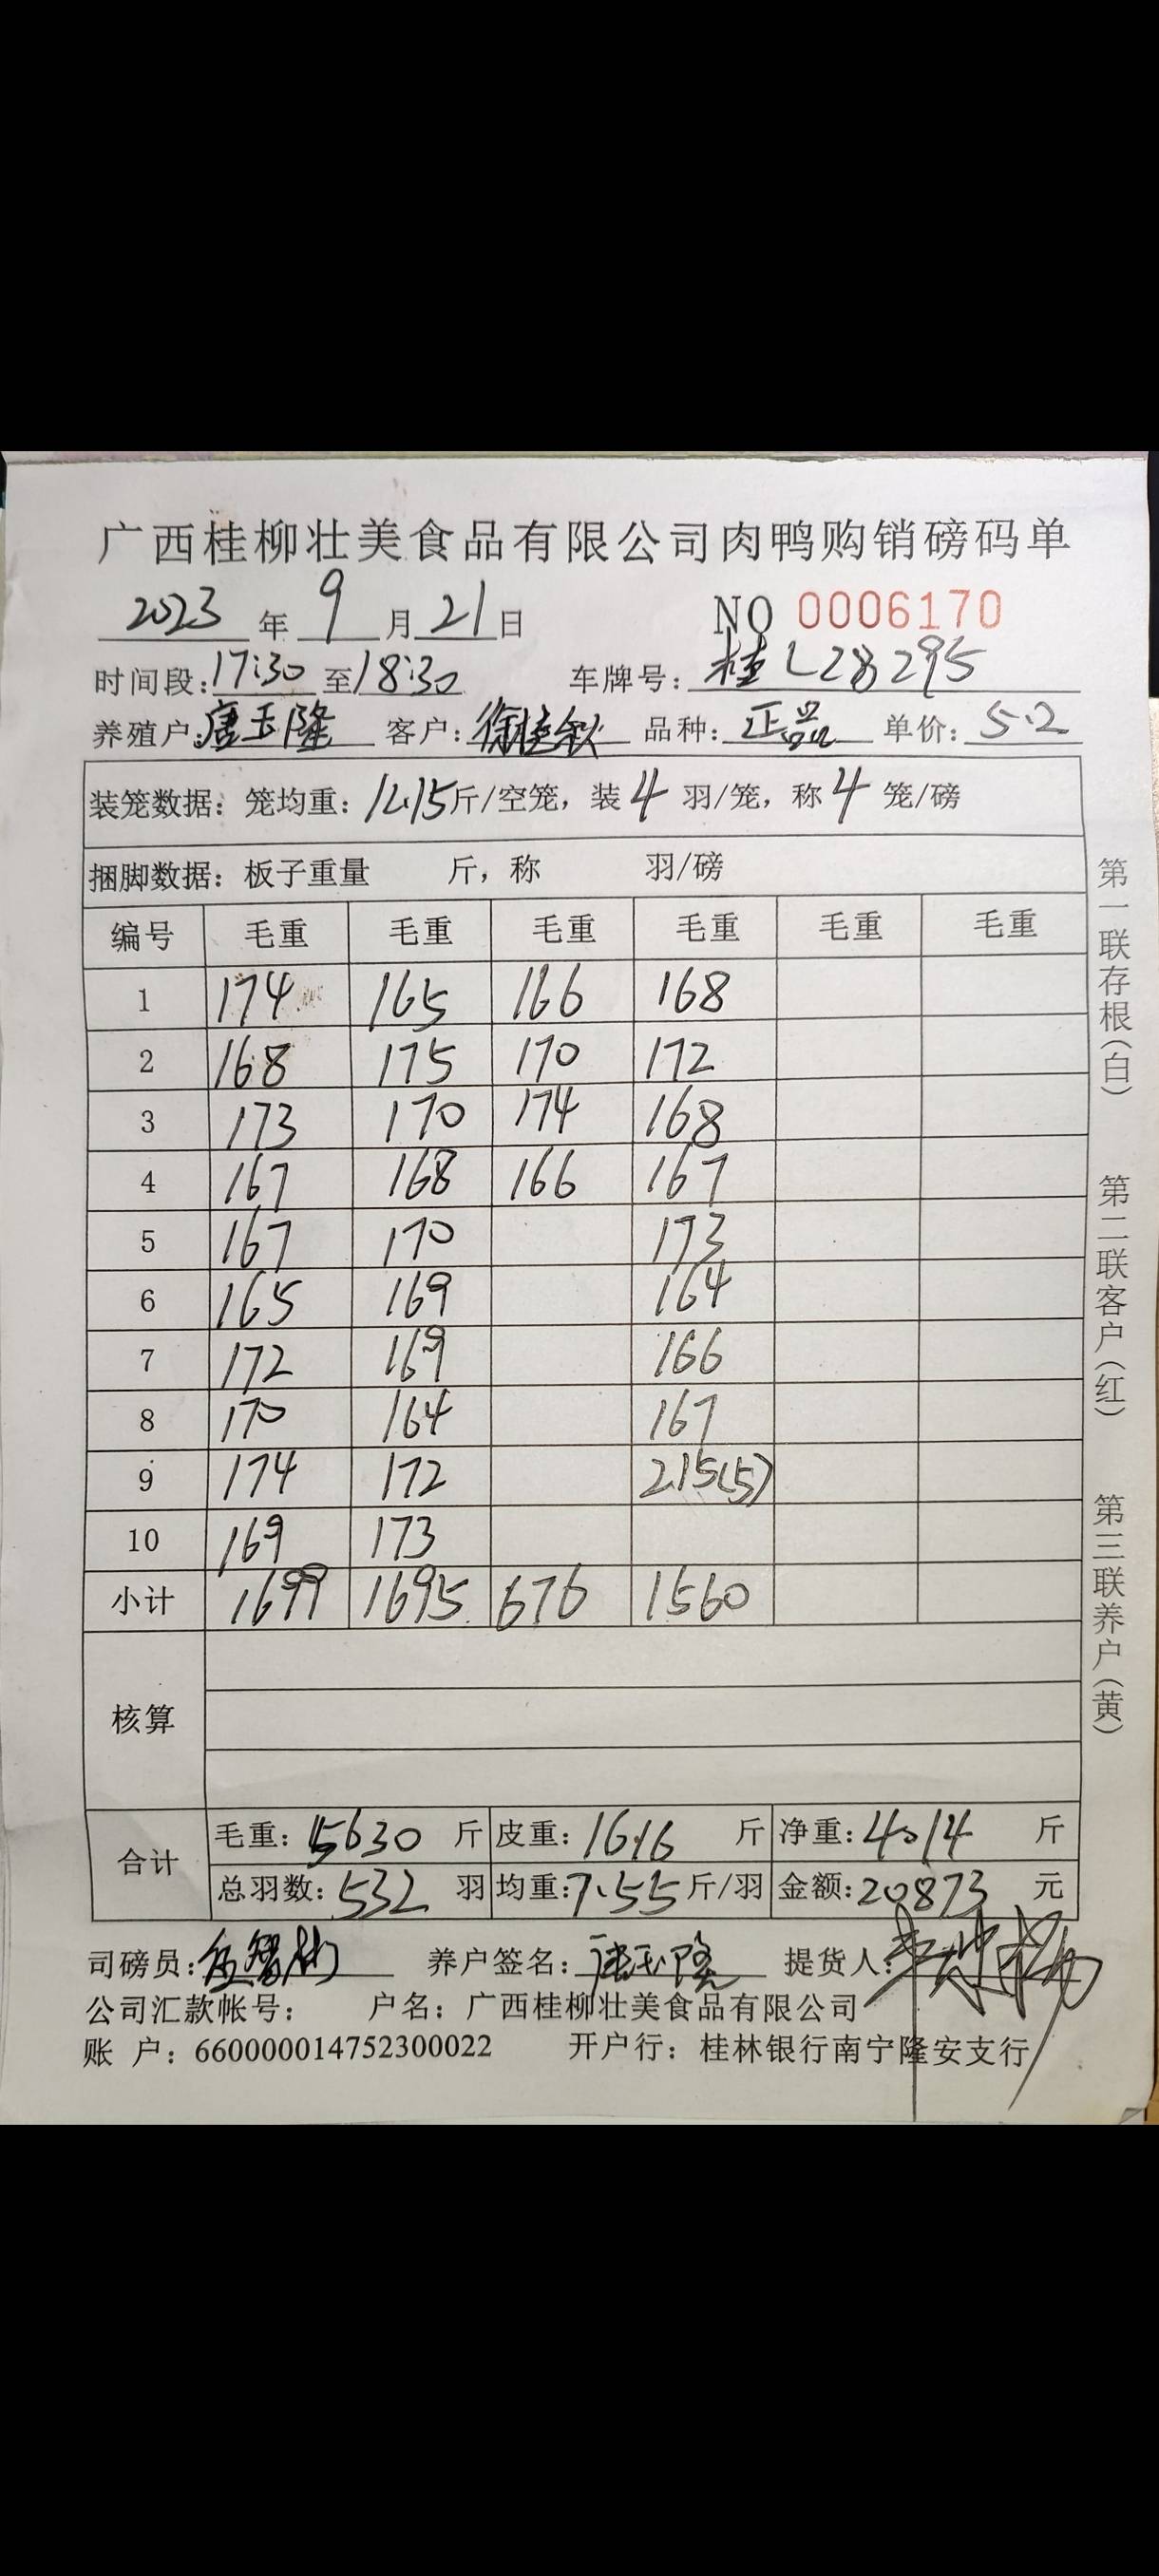 广西桂柳壮美食品有限公司肉鸭购销磅码单
2023 年 9 月 21 日 NO 0006170
时间段: 17:30 至 18:30 车牌号: 桂L28295
养殖户: 唐玉隆 客户: 徐桂钦 品种: 正品 单价: 5.2
装笼数据: 笼均重: 12.15 斤/空笼, 装 4 羽/笼, 称 4 笼/磅
捆脚数据: 板子重量 斤, 称 羽/磅
编号 毛重 毛重 毛重 毛重 毛重 毛重
1 174 165 166 168
2 168 175 170 172
3 173 170 174 168
4 167 168 166 167
5 167 170 173
6 165 169 164
7 172 169 166
8 170 164 167
9 174 172 215(5)
10 169 173
小计 1699 1695 676 1560
核算
合计
毛重: 5630 斤 皮重: 1616 斤 净重: 4014 斤
总羽数: 532 羽 均重: 7.55 斤/羽 金额: 20873 元
司磅员: 养户签名: 唐玉隆 提货人:
公司汇款帐号: 户名: 广西桂柳壮美食品有限公司
账 户: 660000014752300022 开户行: 桂林银行南宁隆安支行
第一联存根(白) 第二联客户(红) 第三联养户(黄)